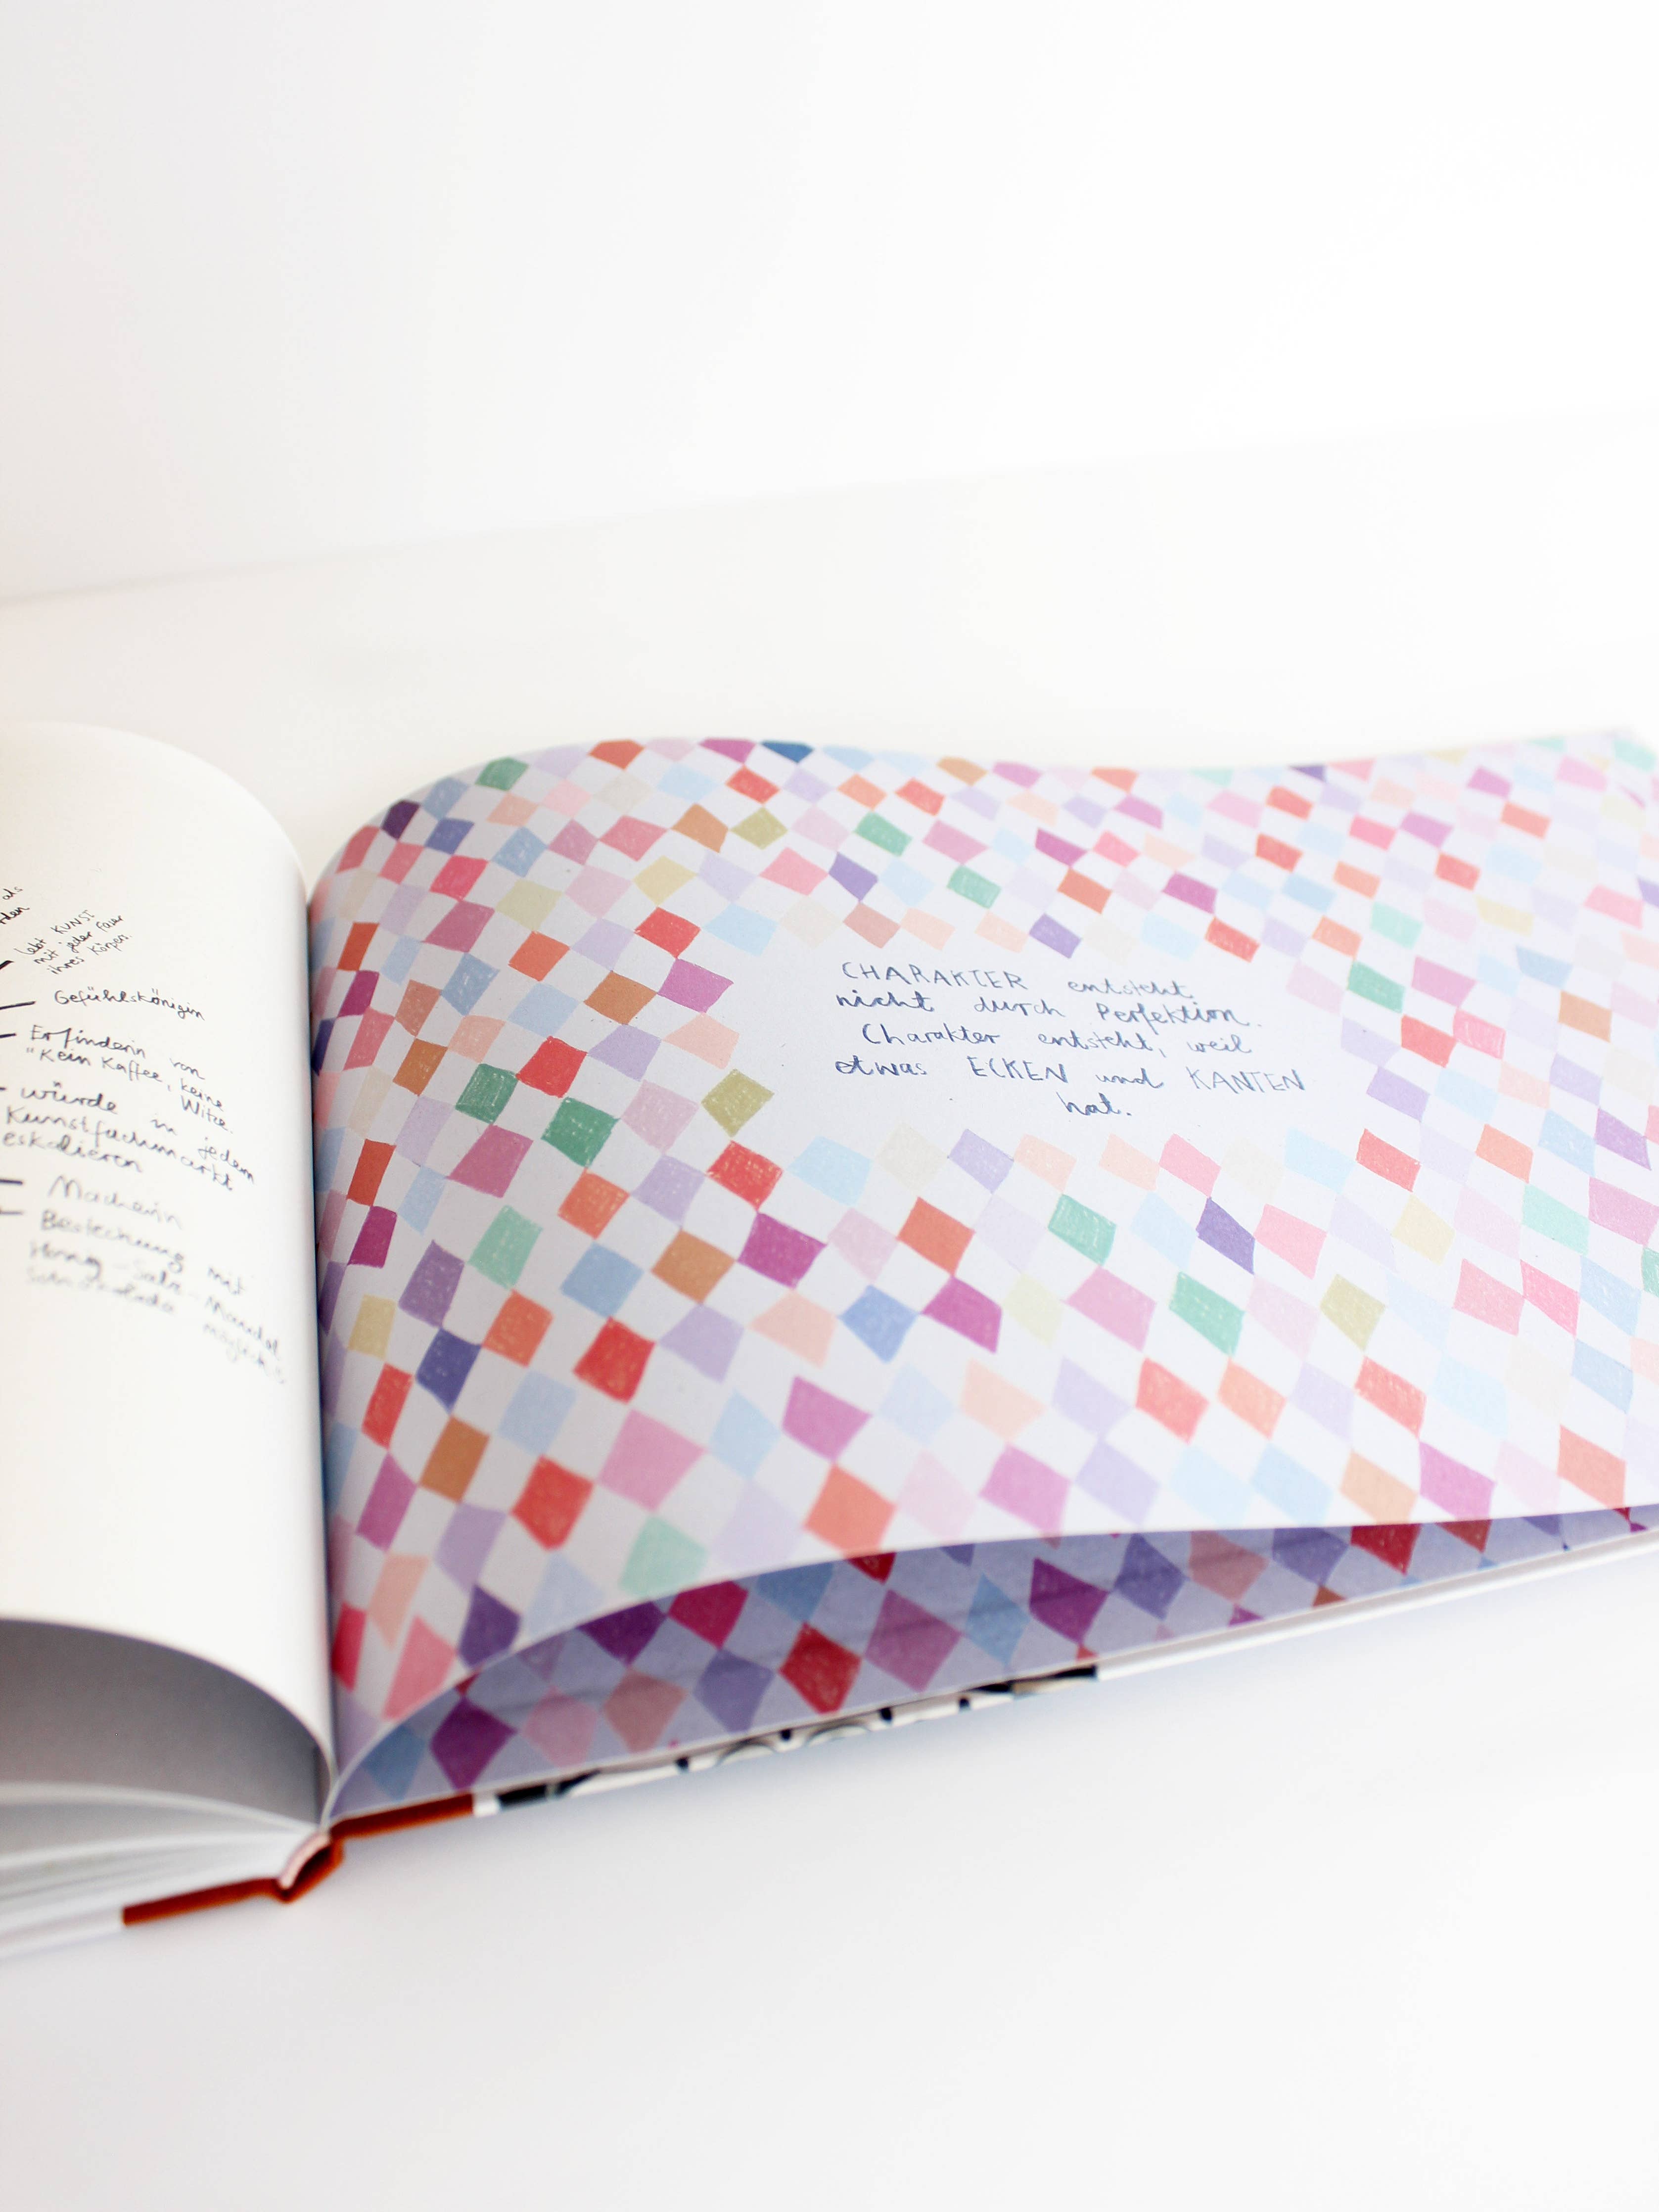 als
lebt KUNST
mit jeder Faser
ihres Körpers.
Gefühlskönigin
Erfinderin von
"Kein Kaffee, keine
Witze.
würde in jedem
Kunstfachmarkt
eskalieren
Macherin
Bestechung mit
Honig-Salz-Mandel
Schokolade möglich
CHARAKTER entsteht
nicht durch Perfektion.
Charakter entsteht, weil
etwas ECKEN und KANTEN
hat.